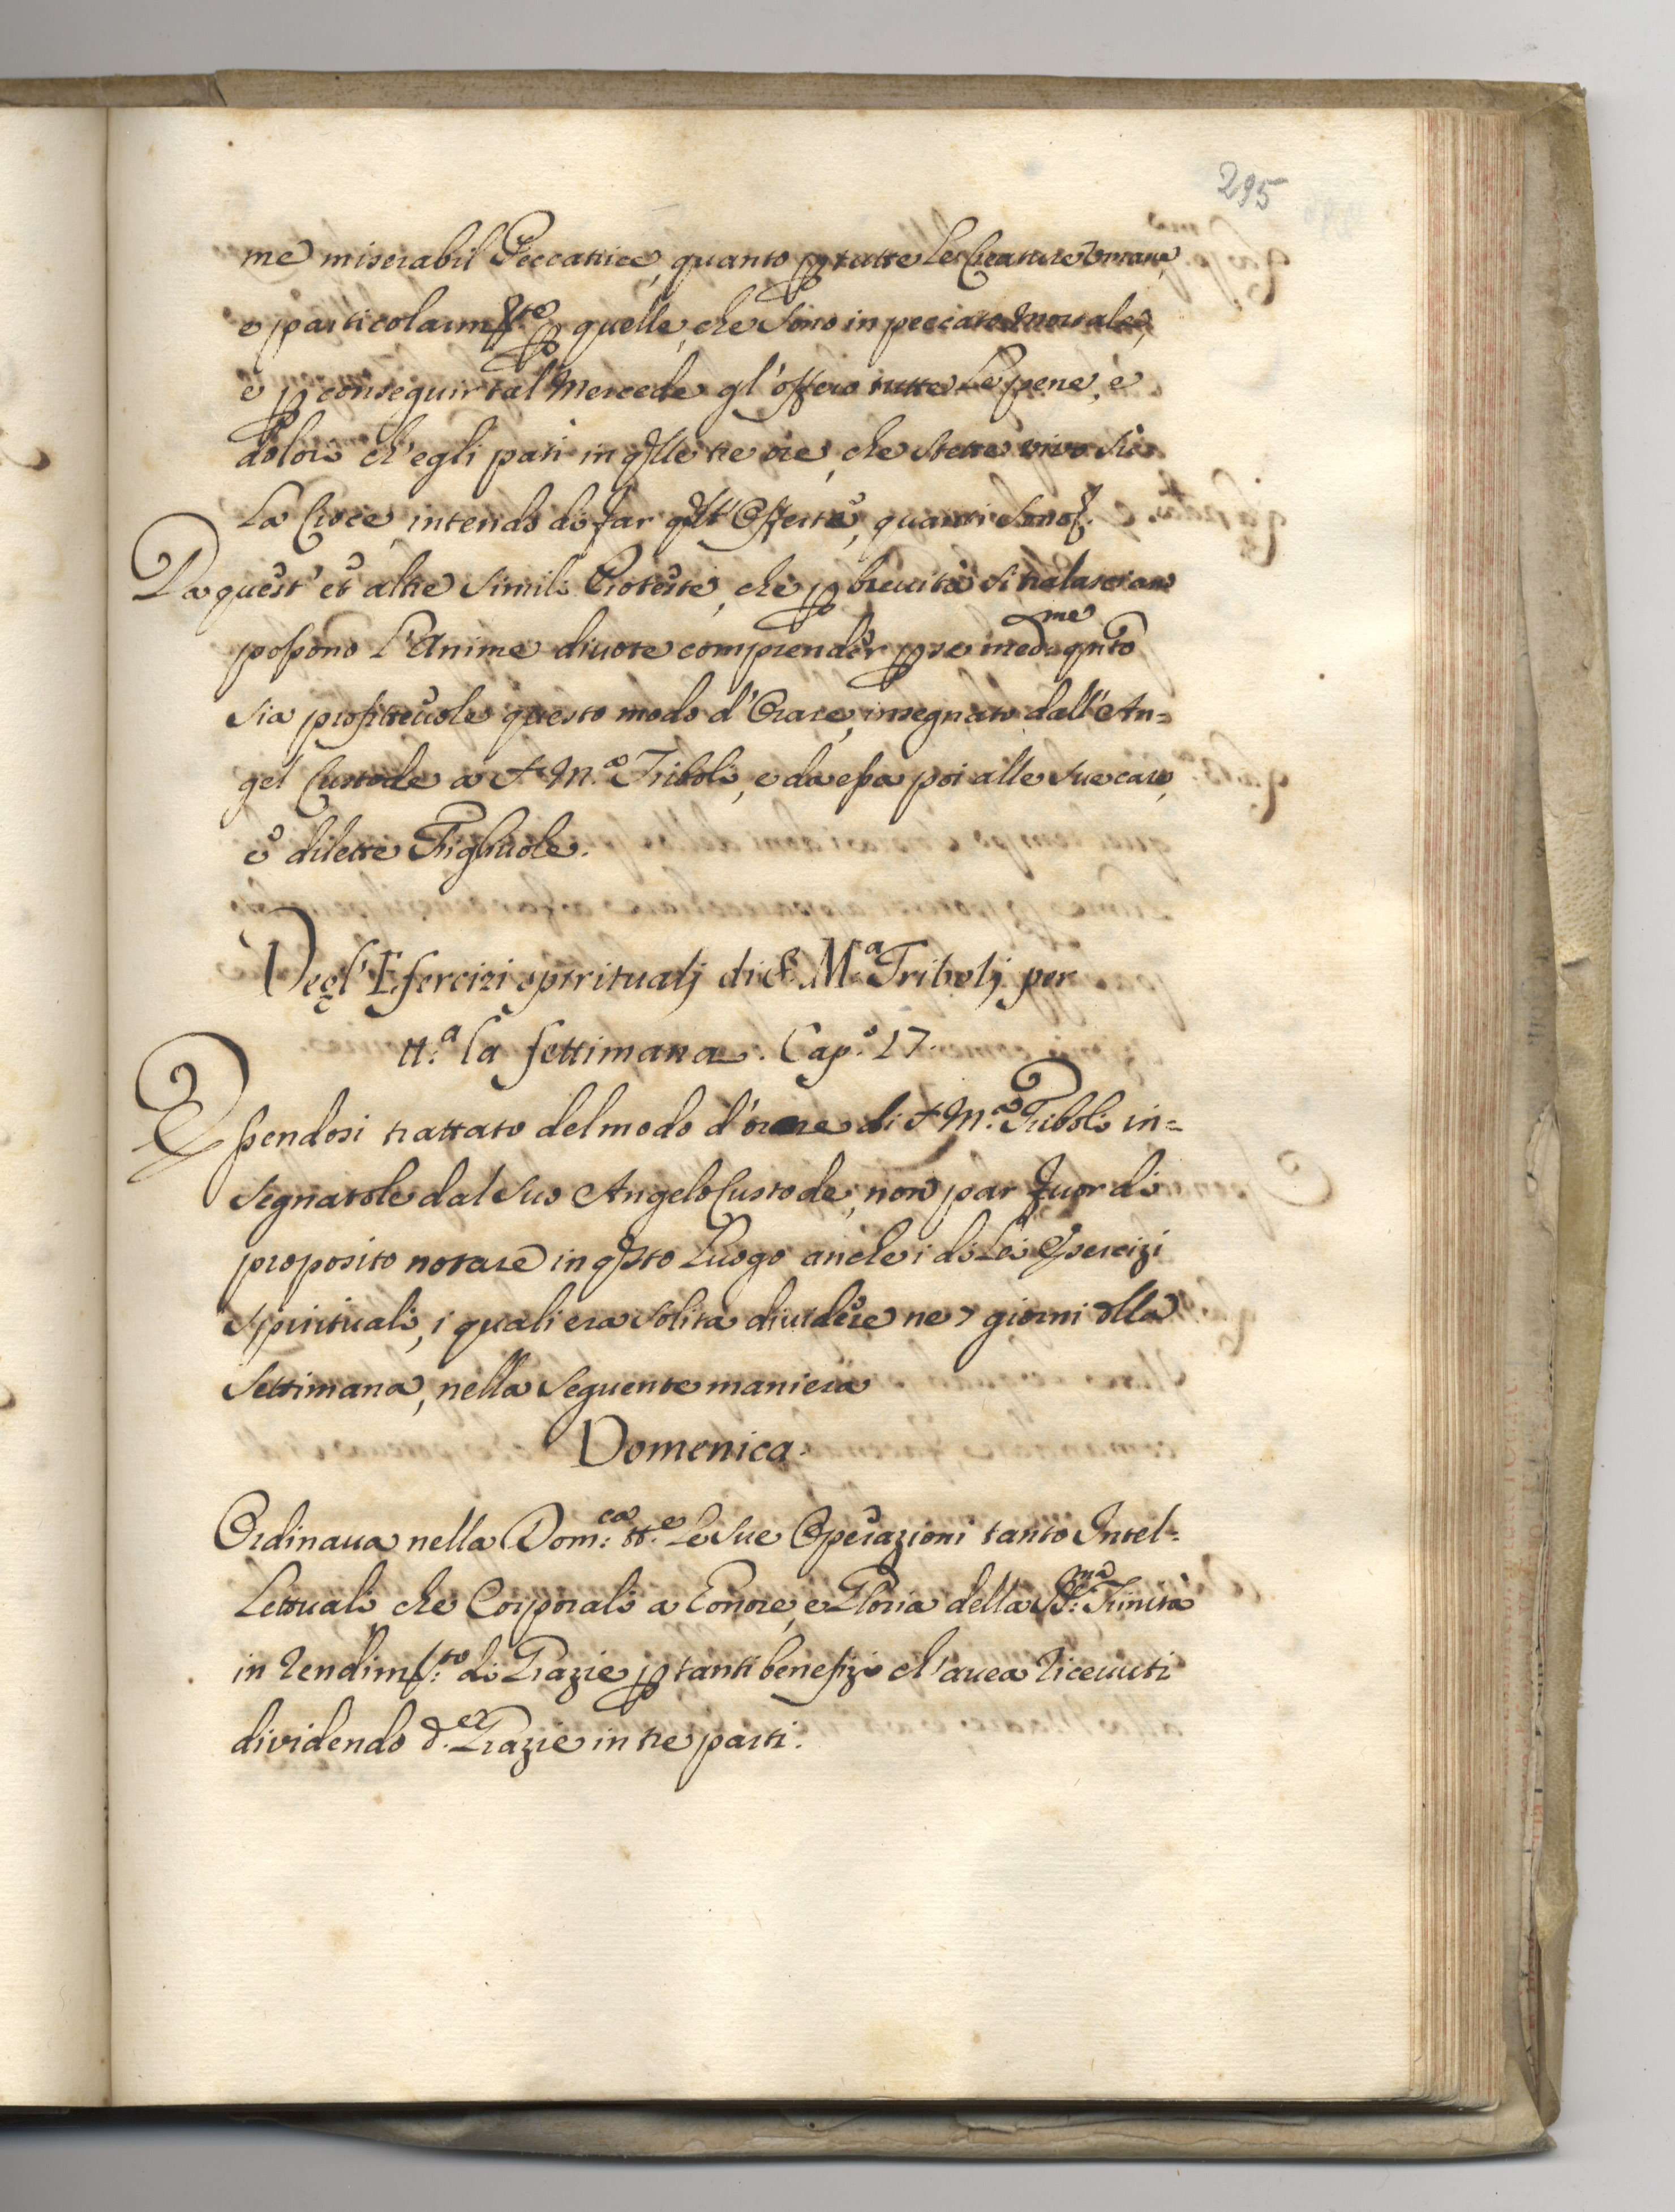 295
me miserabil Peccatrice, quanto p tutte le Creature Umane,
e particolarmte p quelle, che sono in peccato Mortale,
e p conseguir tal Mercede gl'offero tutte le pene, e
dolori ch'egli patì in qlle tre ore, che stette vivo sù
la Croce, intendo di far qst'Offerte, quanti sono
Da quest' et altre simili Proteste, che p breuità si tralasciano
possono l'Anime diuote comprender p se medme qnto
sia profitteuole questo modo d'Orare, insegnato dall'An=
gel Custode a S. M.a Triboli, e da essa poi alle sue care,
e dilette Figliuole.
Degl'Esercizi spiritualj di S. M.a Tribolj per
tt.a la settimana. Cap.o 17.
Essendosi trattato del modo d'orare di S. M.a Triboli in=
segnatole dal suo Angelo Custode, non par fuor di
proposito notare in qsto Luogo anche i di Lei Esercizi
spirituali, i quali era solita diuidere ne 7 giorni dlla
Settimana, nella seguente maniera
Domenica.
Ordinaua nella Dom:ca tt.e le sue Operazioni tanto Intel=
lettuali che Corporali a Eonore, e Gloria della SS:ma Trinità
in rendim:to di Grazie p tanti benefizi ch'auea riceuuti
dividendo d.e Grazie in tre parti.